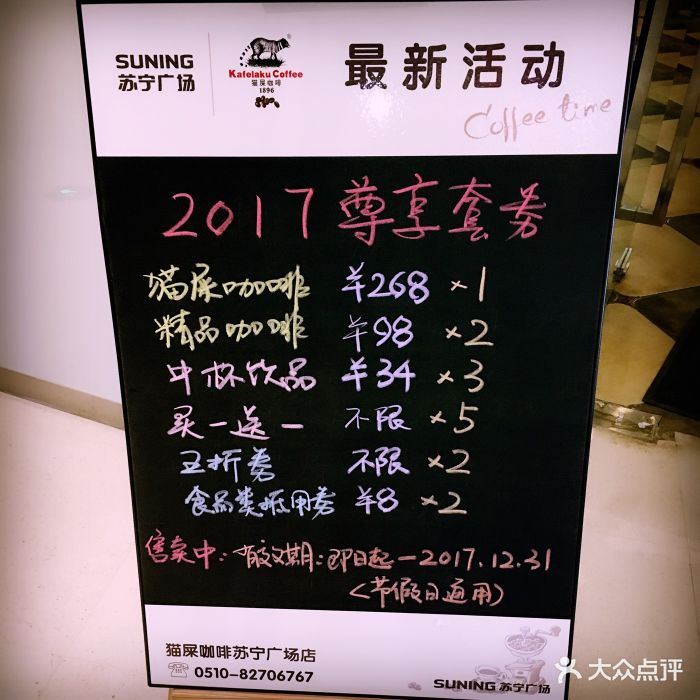 SUNING
苏宁广场
Kafelaku Coffee
猫屎咖啡
1896
最新活动
Coffee time
2017 尊享套券
猫屎咖啡 ¥268 ×1
精品咖啡 ¥98 ×2
中杯饮品 ¥34 ×3
买一送一 不限 ×5
五折券 不限 ×2
食品类抵用券 ¥8 ×2
售卖中: 有效期:即日起—2017.12.31
(节假日通用)
猫屎咖啡苏宁广场店
0510-82706767
SUNING 苏宁广场
大众点评